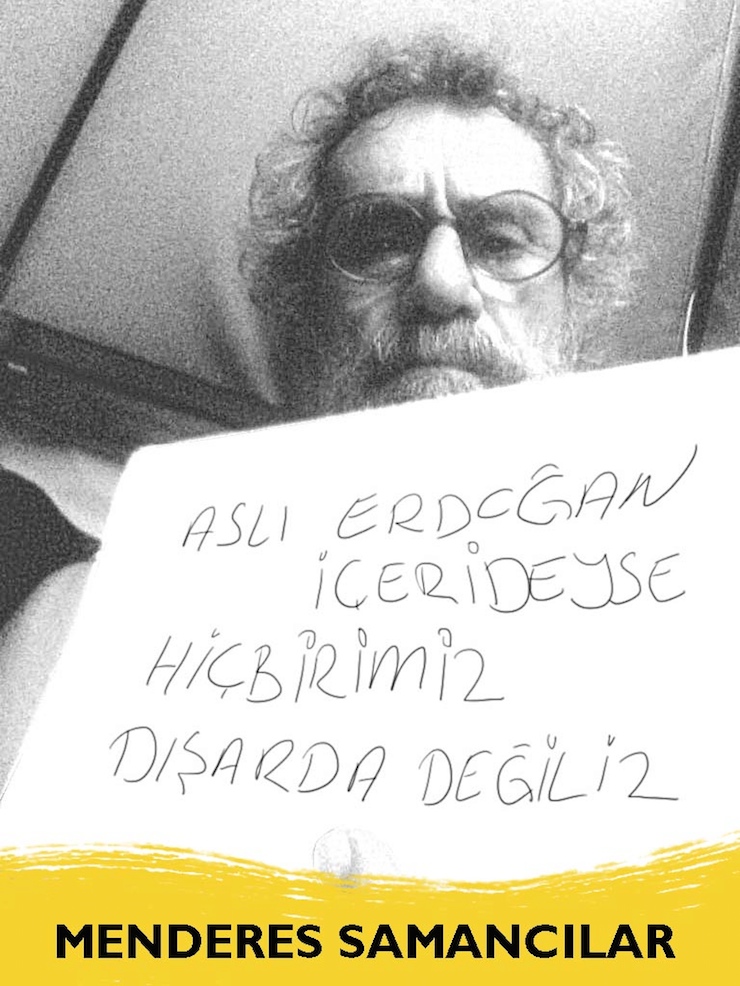 ASLI ERDOĞAN
İÇERİDEYSE
HİÇBİRİMİZ
DIŞARDA DEĞİLİZ
MENDERES SAMANCILAR